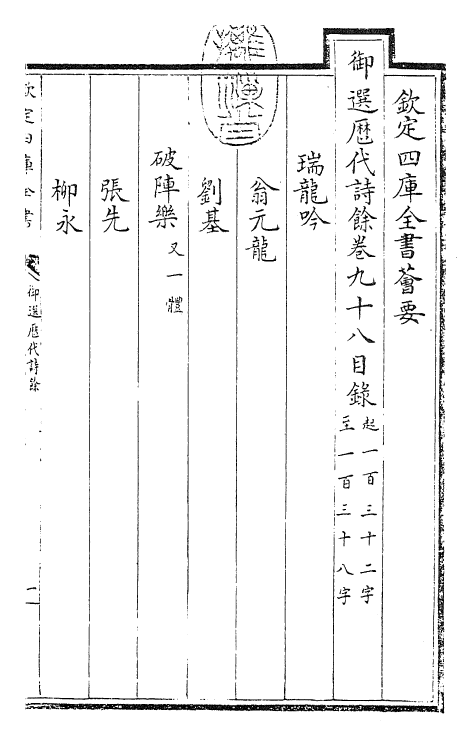 欽定四庫全書薈要
御選歷代詩餘卷九十八目錄起一百三十二字
至一百三十八字
瑞龍吟
翁元龍
劉基
破陣樂又一體
張先
柳永
欽定四庫全書
御選歷代詩餘